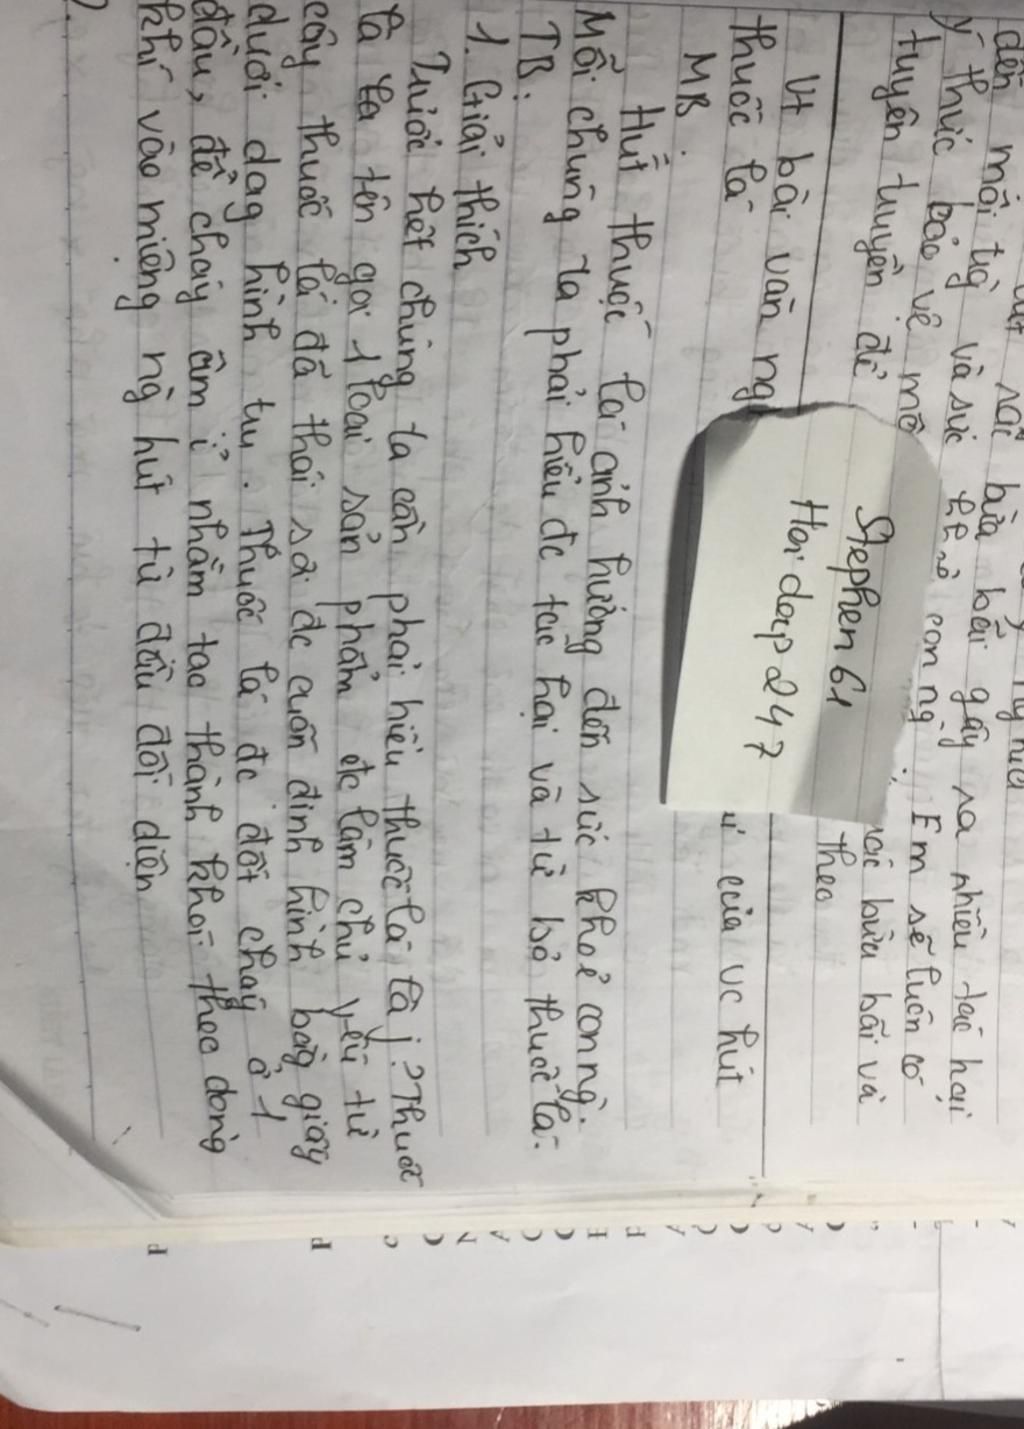 đến môi trg và sức khỏe con ng. Em sẽ luôn có
ý thức bảo vệ
tuyên truyền để
theo
Stephen 61
Hoidap247
Vt bài văn ngh
của vc hút
thuốc lá
MB.
Hút thuốc lá ảnh hưởng đến sức khoẻ con ng.
Mỗi chúng ta phải hiểu đc tác hại và từ bỏ thuốc lá.
TB:
1. Giải thích
Trước hết chúng ta cần phải hiểu thuốc lá là j? Thuốc
lá là tên gọi 1 loại sản phẩm đc làm chủ yếu từ
cây thuốc lá đã thái sợi đc cuốn định hình bằg giấy
dưới dạg hình trụ. Thuốc lá đc đốt cháy ở 1
đầu, để cháy âm ỉ nhằm tạo thành khói theo dòng
khí vào miệng ng hút từ đầu đối diện
2.